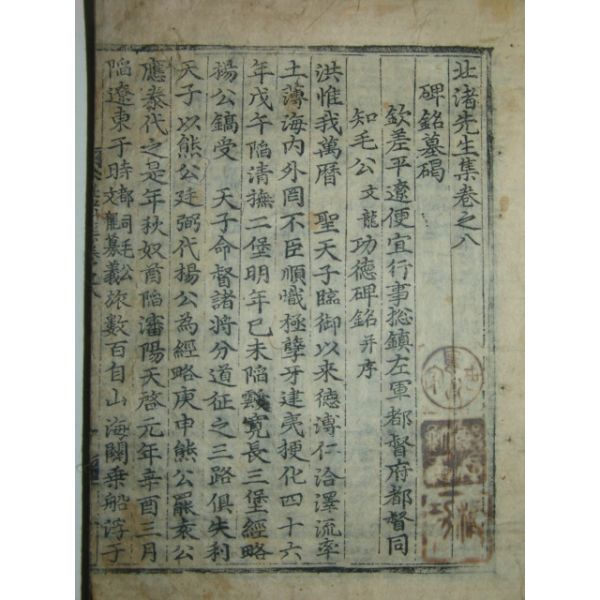 北渚先生集卷之八
碑銘墓碣
欽差平遼便宜行事摠鎮左軍都督府都督同
知毛公文龍功德碑銘并序
洪惟我萬曆 聖天子臨御以来德溥仁洽澤流率
土薄海内外罔不臣順熾極孽牙建夷梗化四十六
年戊午陷清撫二堡明年己未陷寬長三堡經略
楊公鎬受 天子命督諸将分道征之三路俱失利
天子以熊公廷弼代楊公為經略庚申熊公罷袁公
應泰代之是年秋奴酋陷瀋陽天啓元年辛酉三月
陷遼東于時都司毛公文龍募義旅數百自山海關乗船浮于